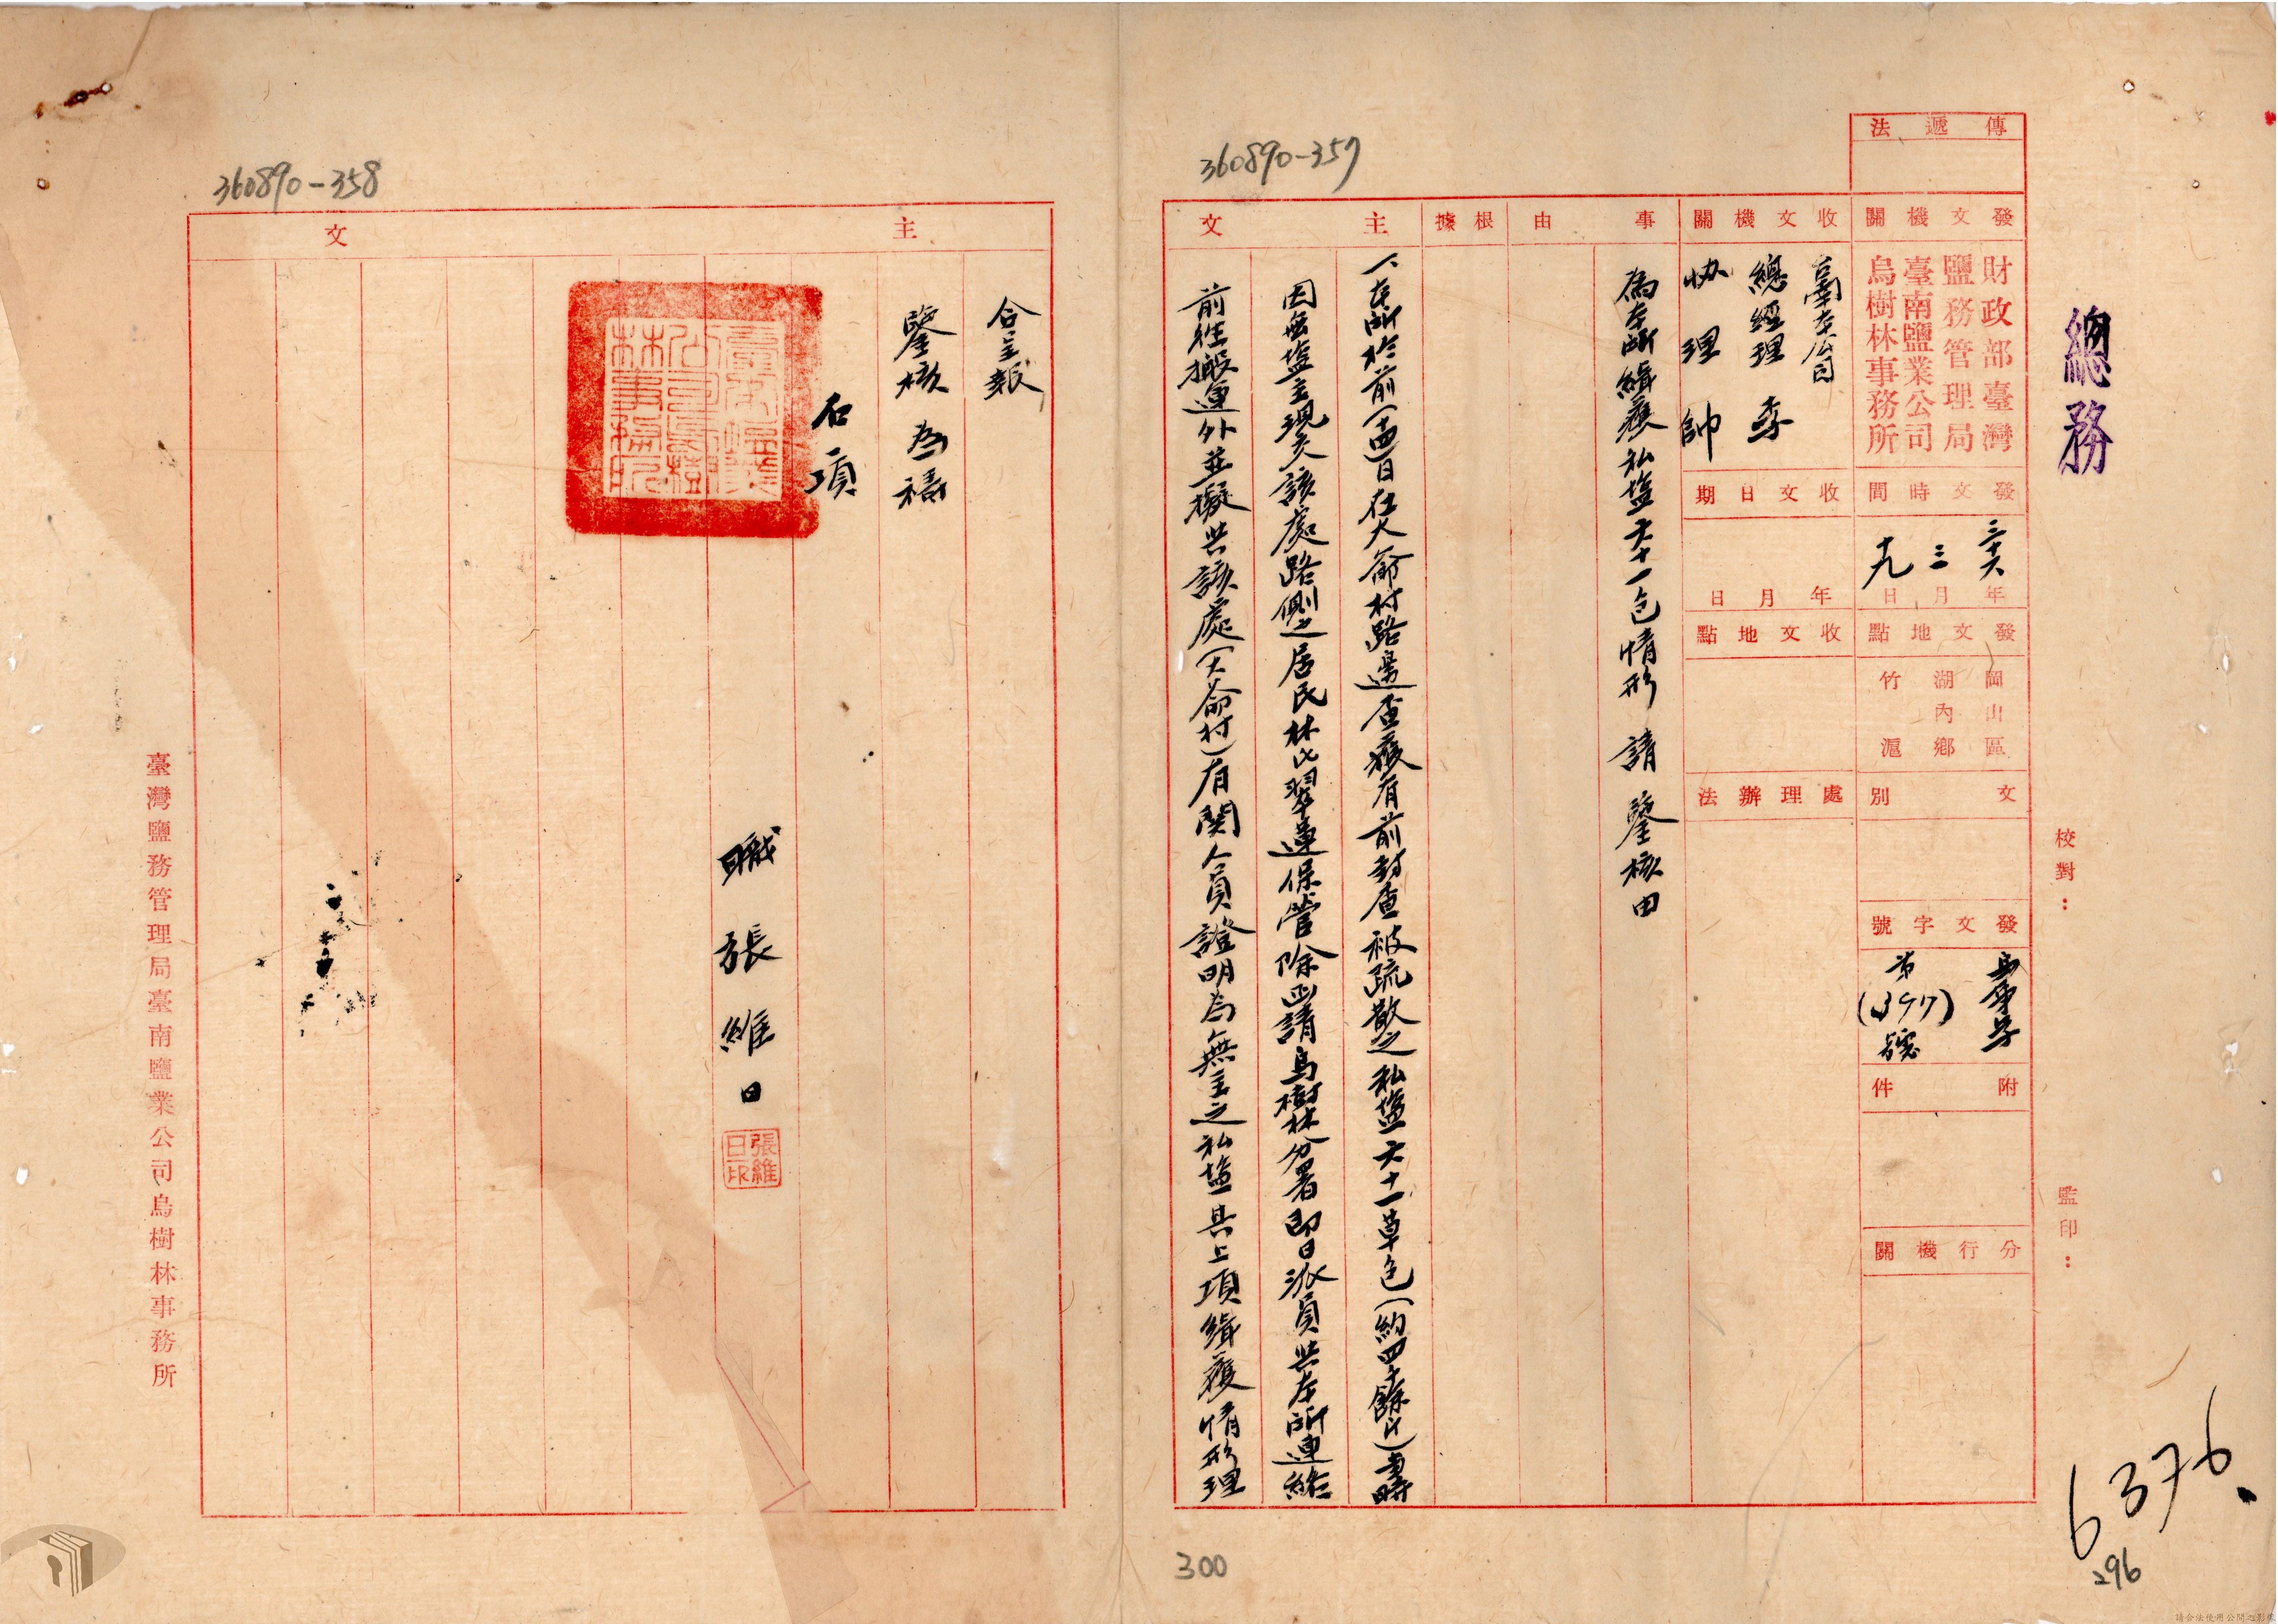 總務
校對：
監印：
6376.
296
傳遞法
發文機關
財政部臺灣
鹽務管理局
臺南鹽業公司
烏樹林事務所
發文時間
三十六年三月十九日
發文地點
岡山區
湖內鄉
竹滬
文別
發文字號
第(397)號
附件
分行機關
收文機關
台南本公司
總經理 李
協理 帥
收文日期
年月日
收文地點
處理辦法
事由
為本所緝獲私塩六十一包情形 請 鑒核由
根據
主文
360890-357
一、本所於前(十四)日在大爺村路邊查獲有前封查被疏散之私塩六十一草包(約四千餘斤)當時
因無塩主現交該處路側之居民林氏翠蓮保管除函請烏樹林分署即日派員與本所連絡
前往搬運外並擬與該處(大爺村)有関人員證明為無主之私塩具上項緝獲情形理
300
360890-358
主文
合呈報
鑒核為禱
右項
職 張維日
張維日印
臺灣鹽務管理局臺南鹽業公司烏樹林事務所